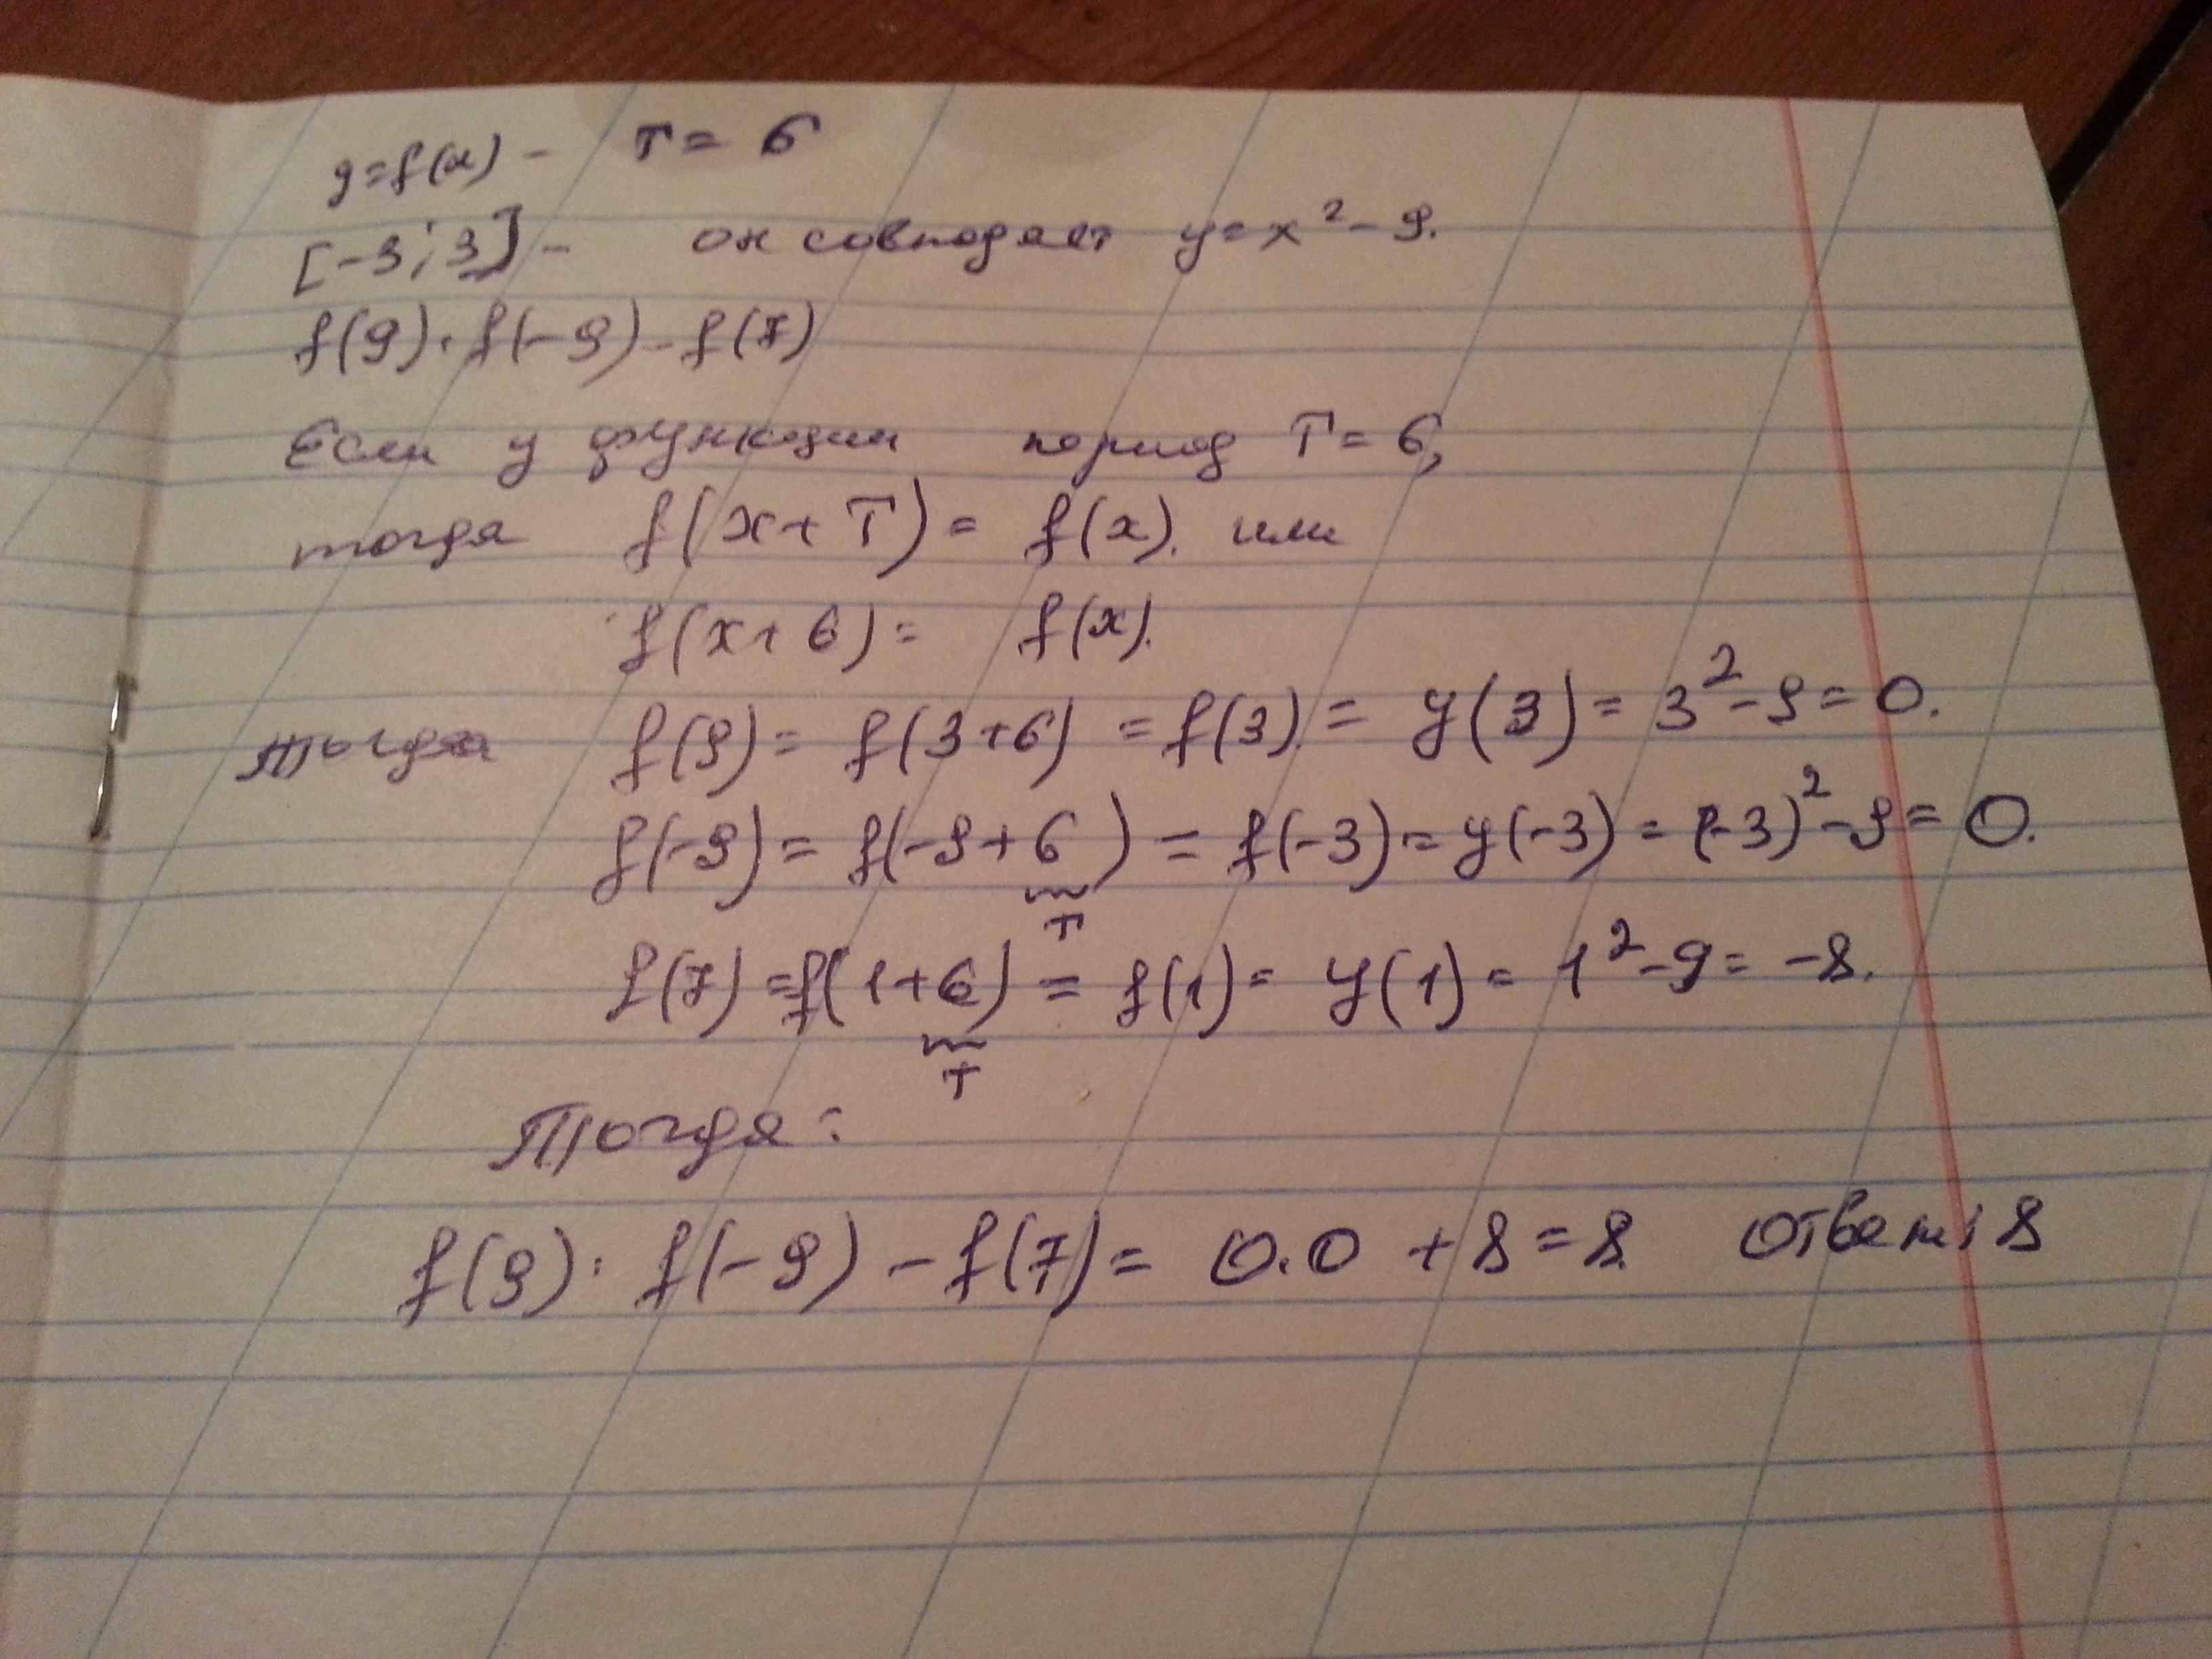 y=f(x) - T = 6
[-3; 3] - он совпадает y=x²-9.
f(9)·f(-9)-f(7)
Если у функции период T=6,
тогда f(x+T)= f(x). или
f(x+6)= f(x).
тогда f(9)= f(3+6) =f(3) = y(3)= 3²-9=0.
f(-9)= f(-9+6) = f(-3)= y(-3) = (-3)²-9= 0.
T
f(7)=f(1+6) = f(1)= y(1)= 1²-9= -8.
T
Тогда:
f(9)· f(-9) -f(7)= 0·0 +8=8 Ответ: 8